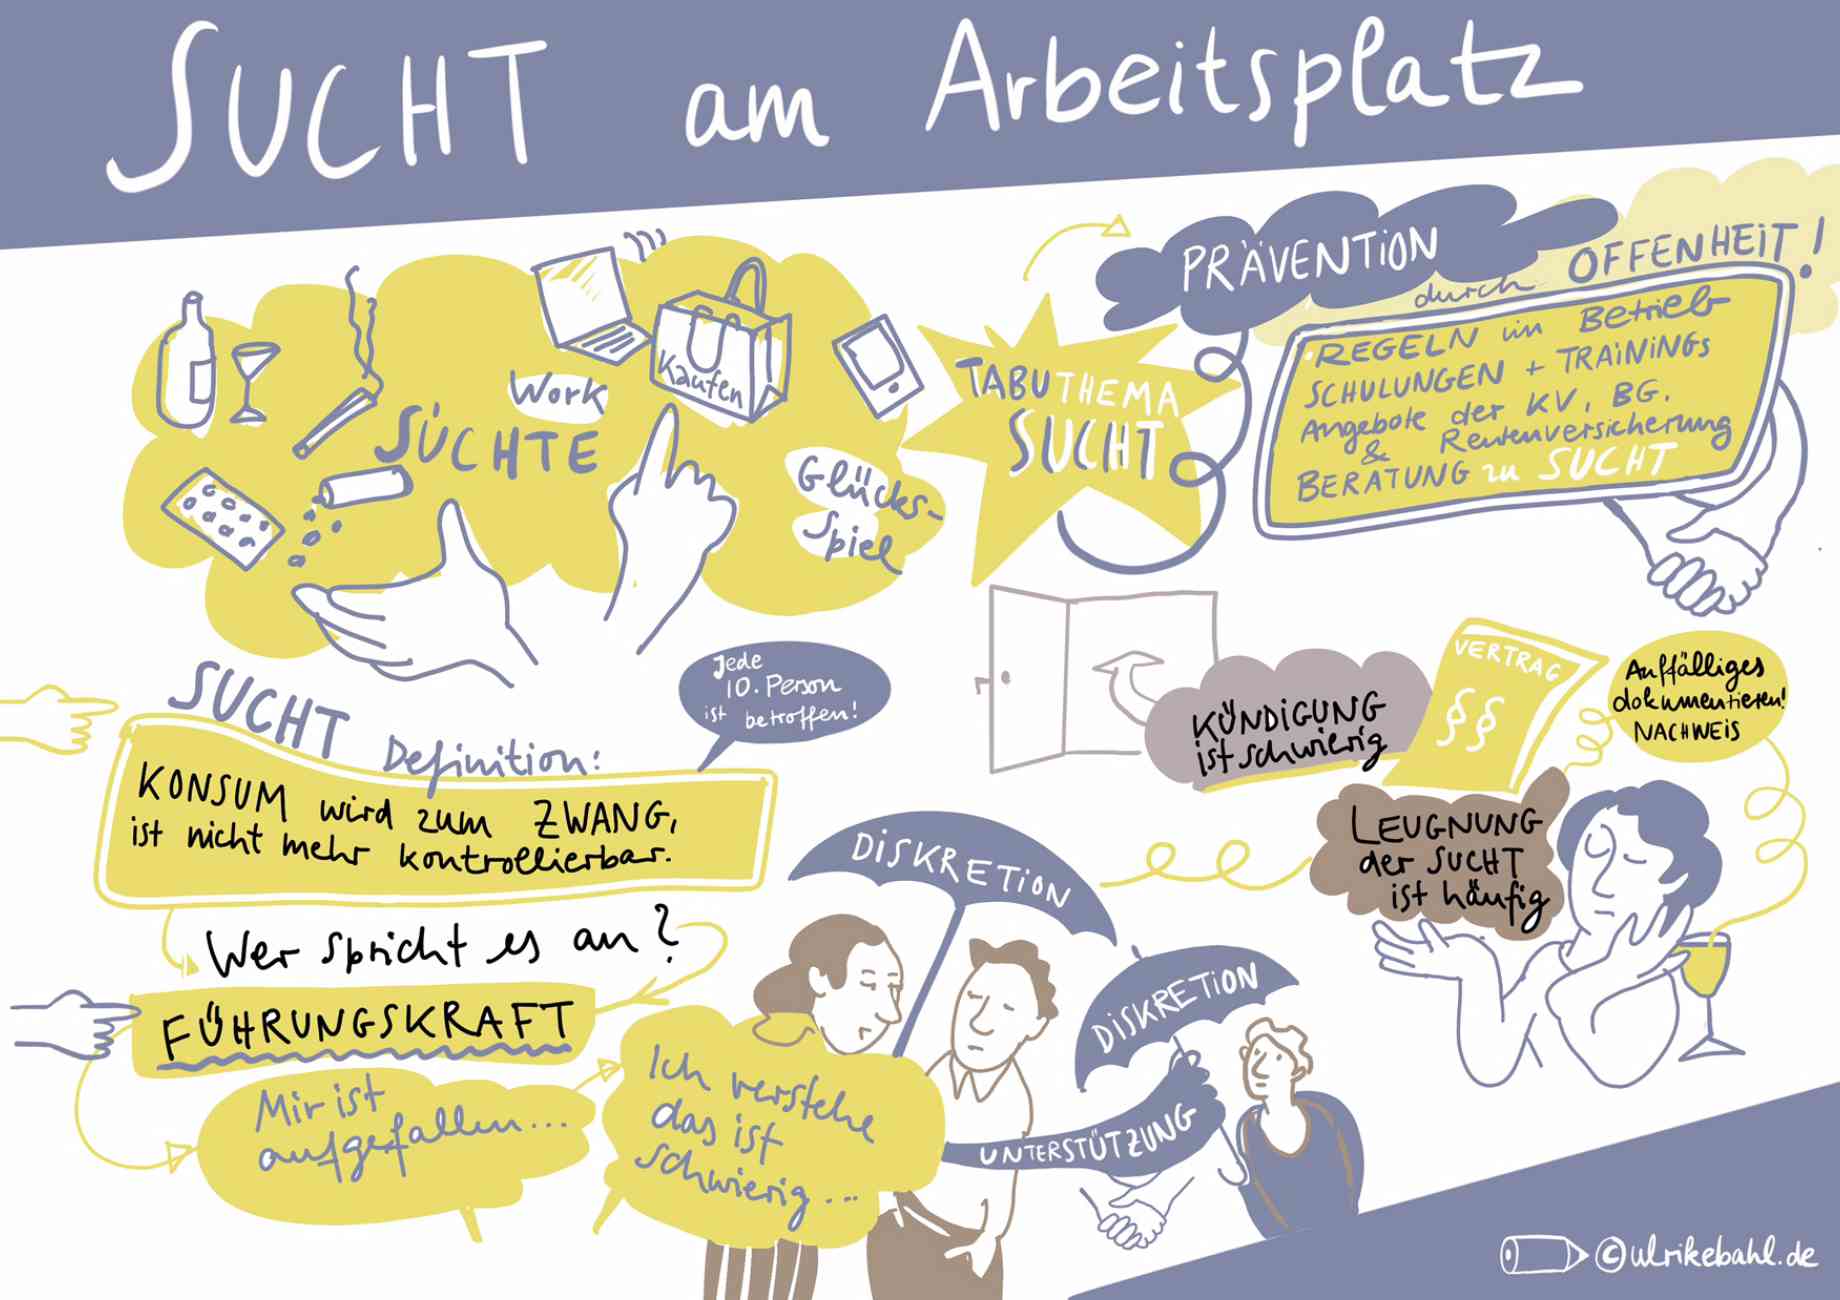 SUCHT am Arbeitsplatz
SÜCHTE
Work
Kaufen
Glücks-
spiel
TABUTHEMA
SUCHT
PRÄVENTION
durch OFFENHEIT!
·REGELN im Betrieb
SCHULUNGEN + TRAININGS
Angebote der KV, BG,
& Rentenversicherung
BERATUNG zu SUCHT
SUCHT Definition:
KONSUM wird zum ZWANG,
ist nicht mehr kontrollierbar.
Jede
10. Person
ist betroffen!
Wer spricht es an?
FÜHRUNGSKRAFT
Mir ist
aufgefallen...
Ich verstehe
das ist
schwierig...
KÜNDIGUNG
ist schwierig
VERTRAG
§§
Auffälliges
dokumentieren!
NACHWEIS
LEUGNUNG
der SUCHT
ist häufig
DISKRETION
DISKRETION
UNTERSTÜTZUNG
©ulrikebahl.de